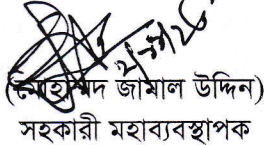 (মোহাম্মদ জামাল উদ্দিন)
সহকারী মহাব্যবস্থাপক